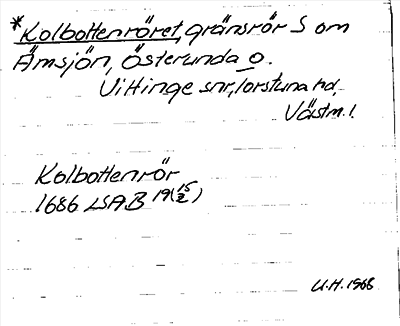 *Kolbottenröret, gränsrör S om
Åmsjön, Österunda o.
Vittinge snr, Torstuna hd,
Västm. l.
Kolbottenrör
1686 LSA B 19(15/2)
U.H. 1968